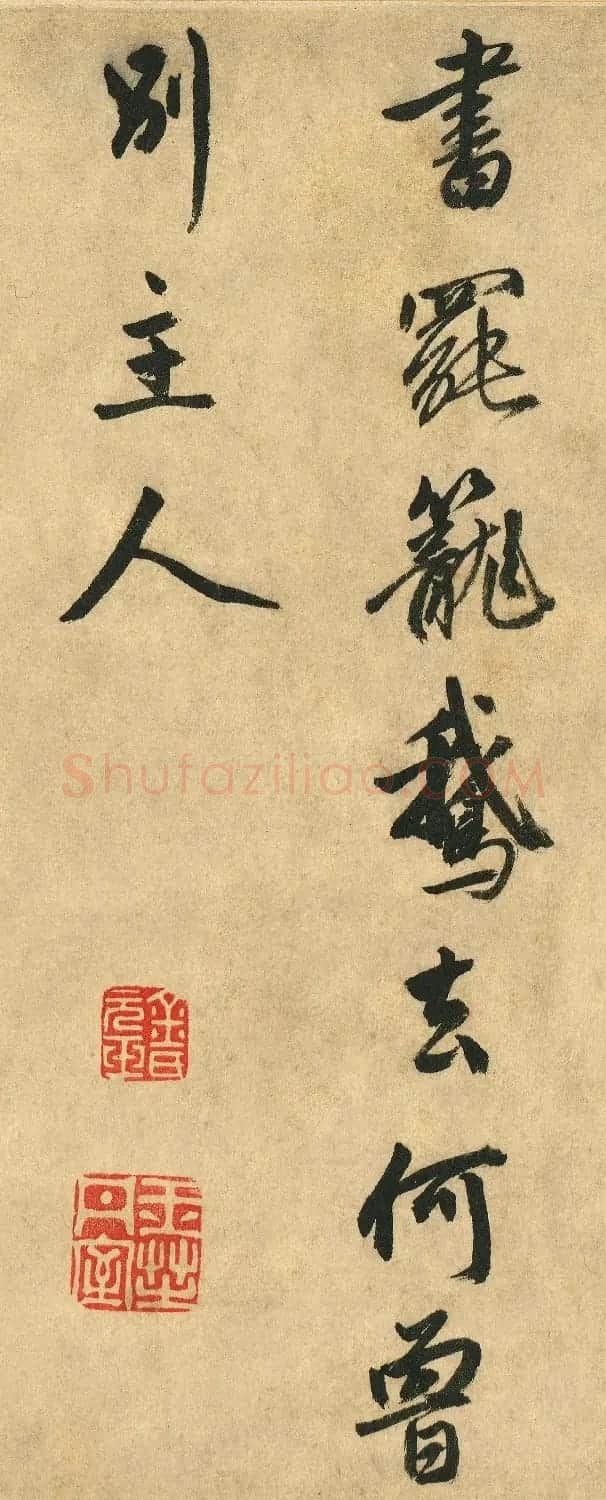 書罷籠鵝去何曾
別主人
Shufaziliao.COM